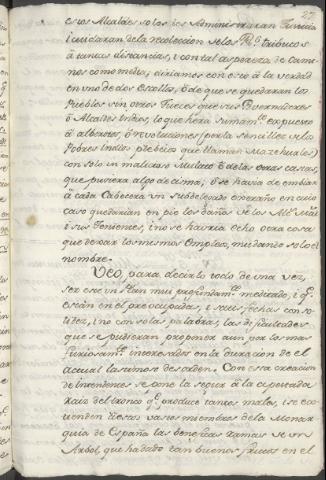 27
esos Alcaldes solos les Administraran Justicia
i cuidaran dela recoleccion delos R.s tributos
à tantas distancias, i con tal aspereza de cami-
nos como media, diriamos con esto à la verdad
en uno de dos escollos, ò de que se quedaran los
Pueblos sin otros Jueces que sus Governadores
ò Alcaldes Indios, lo que será sumam.te expuesto
à alborotos, ò revoluciones (por la sencillez delos
Pobres Indios plebeios que llaman Mazehuales)
con solo un malicioso Mulato ò delas otras castas,
que pusiera algo de cisma; ò se havia de embiar
à cada Cabecera un Subdelegado
caso quedarian en pie los daños de los Alc.s Mai.s
i sus Tenientes, i no se havria echo otra cosa
que dexar los mismos Empleos, mudando solo el
nombre.
Veo, para decirlo todo de una vez,
ser ese un Plan mui profundam.te meditado, i q.e
están en el preocupadas, i satisfechas con so-
lidez, i no con solas palabras, las dificultades
que se pudieran proponer aun por los mas
furiosam.te interesados en la duracion de el
actual lastimoso desorden. Con esta creacion
de Intendentes se pone la segur à la
raiz del tronco q.e produce tantos males, i se ex-
tienden à estos vastos miembros dela Monar-
quia de España las beneficas ramas de un
Arbol que ha dado tan buenos frutos en el